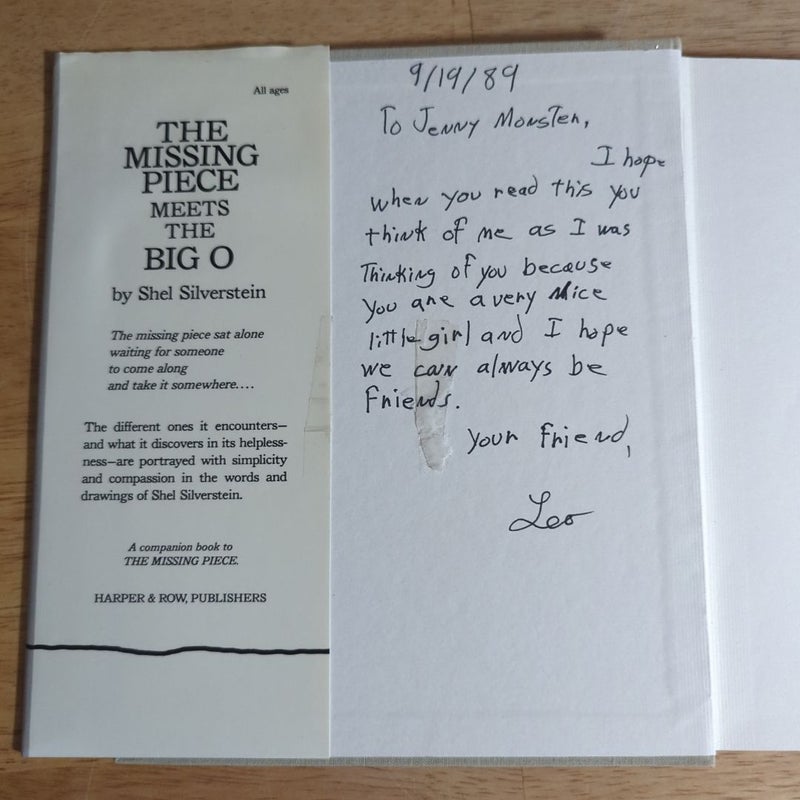 All ages
THE
MISSING
PIECE
MEETS
THE
BIG O
by Shel Silverstein
The missing piece sat alone
waiting for someone
to come along
and take it somewhere....
The different ones it encounters—
and what it discovers in its helpless-
ness—are portrayed with simplicity
and compassion in the words and
drawings of Shel Silverstein.
A companion book to
THE MISSING PIECE.
HARPER & ROW, PUBLISHERS
9/19/89
To Jenny Monster,
I hope
when you read this you
think of me as I was
Thinking of you because
you are a very Nice
little girl and I hope
we can always be
Friends.
your friend,
Leo